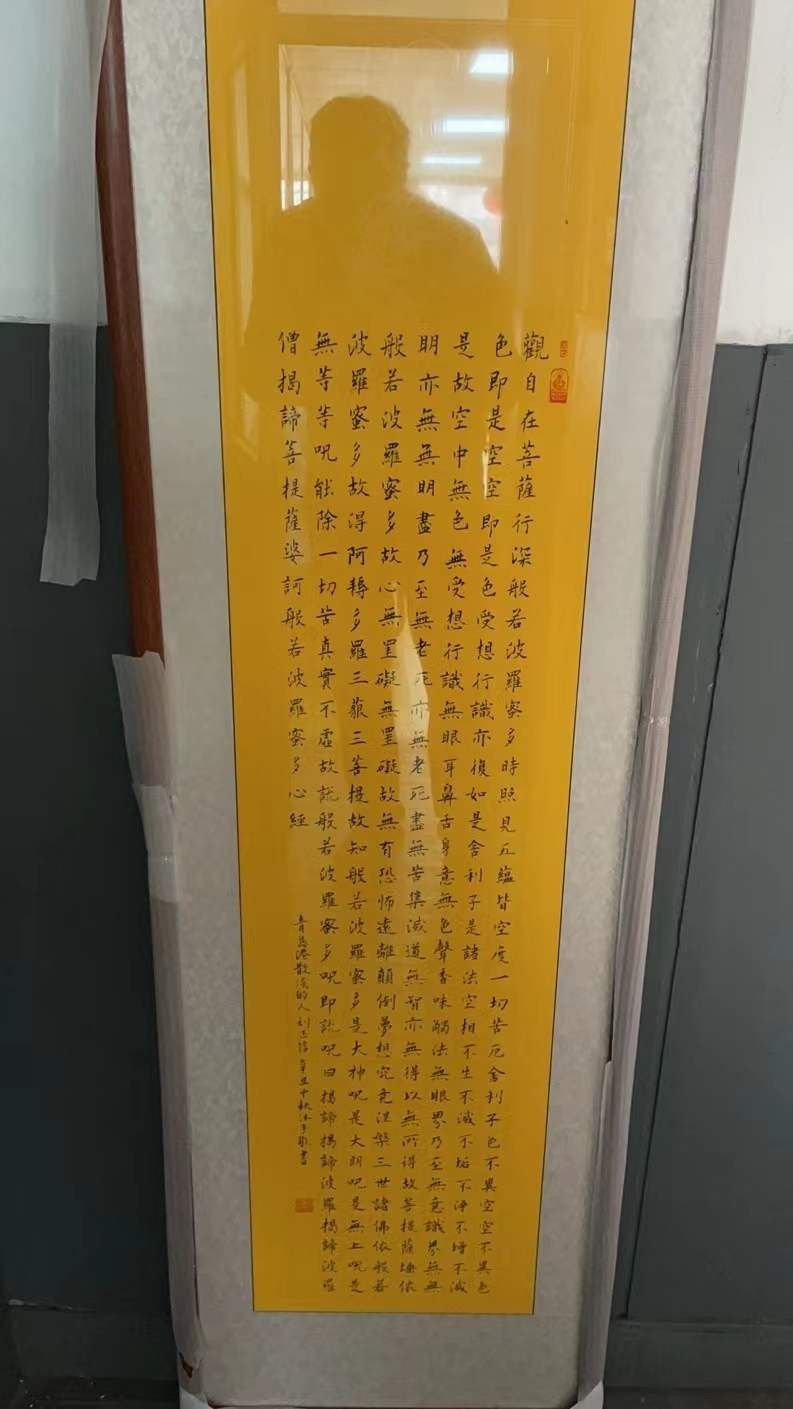 觀自在菩薩行深般若波羅蜜多時照見五蘊皆空度一切苦厄舍利子色不異空空不異色
色即是空空即是色受想行識亦復如是舍利子是諸法空相不生不滅不垢不淨不增不減
是故空中無色無受想行識無眼耳鼻舌身意無色聲香味觸法無眼界乃至無意識界無無
明亦無無明盡乃至無老死亦無老死盡無苦集滅道無智亦無得以無所得故菩提薩埵依
般若波羅蜜多故心無罣礙無罣礙故無有恐怖遠離顛倒夢想究竟涅槃三世諸佛依般若
波羅蜜多故得阿耨多羅三藐三菩提故知般若波羅蜜多是大神呪是大明呪是無上呪是
無等等呪能除一切苦真實不虛故說般若波羅蜜多呪即說呪曰揭諦揭諦波羅揭諦波羅
僧揭諦菩提薩婆訶般若波羅蜜多心經
青島港散淡的人刘正辛丑中秋沐手敬書